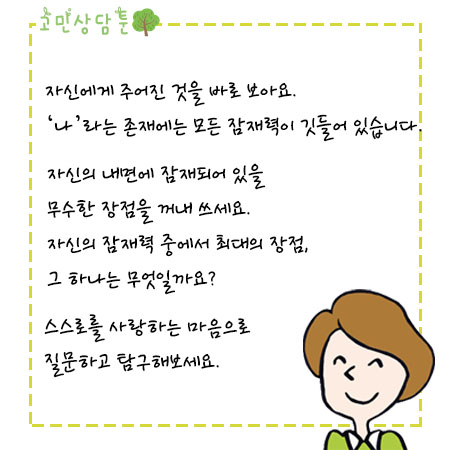 고민상담툰
자신에게 주어진 것을 바로 보아요.
‘나’라는 존재에는 모든 잠재력이 깃들어 있습니다.
자신의 내면에 잠재되어 있을
무수한 장점을 꺼내 쓰세요.
자신의 잠재력 중에서 최대의 장점,
그 하나는 무엇일까요?
스스로를 사랑하는 마음으로
질문하고 탐구해보세요.